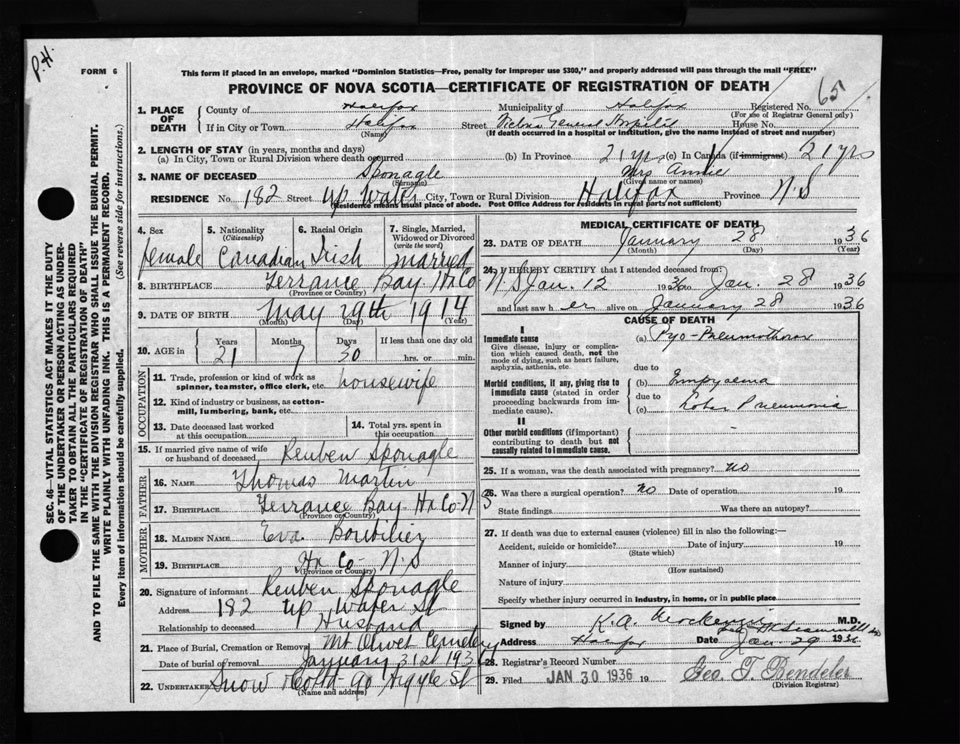 P.H.
FORM 6
This form if placed in an envelope, marked "Dominion Statistics—Free, penalty for improper use $300," and properly addressed will pass through the mail "FREE"
PROVINCE OF NOVA SCOTIA—CERTIFICATE OF REGISTRATION OF DEATH
65
1. PLACE OF DEATH
County of Halifax Municipality of Halifax Registered No.
(For use of Registrar General only)
If in City or Town Halifax Street Victoria General Hospital House No.
(Name) (If death occurred in a hospital or institution, give the name instead of street and number)
2. LENGTH OF STAY (in years, months and days)
(a) In City, Town or Rural Division where death occurred (b) In Province 21 yrs (c) In Canada (if immigrant) 21 yrs
3. NAME OF DECEASED Sponagle Mrs Annie
(Surname) (Given name or names)
RESIDENCE No. 182 Street Up Water City, Town or Rural Division Halifax Province N.S
(Residence means usual place of abode. Post Office Address for residents in rural parts not sufficient)
4. Sex 5. Nationality (Citizenship) 6. Racial Origin 7. Single, Married, Widowed or Divorced (write the word)
female Canadian Irish married
8. BIRTHPLACE Terrance Bay Hx Co
(Province or Country)
9. DATE OF BIRTH May 29th 1914
(Month) (Day) (Year)
10. AGE in Years Months Days If less than one day old
21 7 30 hrs. or min.
OCCUPATION
11. Trade, profession or kind of work as spinner, teamster, office clerk, etc. housewife
12. Kind of industry or business, as cotton-mill, lumbering, bank, etc.
13. Date deceased last worked at this occupation 14. Total yrs. spent in this occupation
15. If married give name of wife or husband of deceased. Reuben Sponagle
FATHER
16. NAME Thomas Martin
17. BIRTHPLACE Terrance Bay Hx Co-N S
(Province or Country)
MOTHER
18. MAIDEN NAME Eva Boutilier
19. BIRTHPLACE Hx Co- N.S
(Province or Country)
20. Signature of informant Reuben Sponagle
Address 182 Up Water St
Relationship to deceased Husband
21. Place of Burial, Cremation or Removal Mt Olivet Cemetery
Date of burial or removal January 31st 1936
22. UNDERTAKER Snow & Co Ltd - 90 Argyle St
(Name and address)
MEDICAL CERTIFICATE OF DEATH
23. DATE OF DEATH January 28 1936
(Month) (Day) (Year)
24. I HEREBY CERTIFY that I attended deceased from:
N.S Jan. 12 1936 to Jan. 28 1936
and last saw her alive on January 28 1936
CAUSE OF DEATH
I
Immediate cause (a) Pyo-Pneumothorax
Give disease, injury or complication which caused death, not the mode of dying, such as heart failure, asphyxia, asthenia, etc.
due to
Morbid conditions, if any, giving rise to immediate cause (stated in order proceeding backwards from immediate cause).
(b) Empyema
due to
(c) Lobar Pneumonia
II
Other morbid conditions (if important) contributing to death but not causally related to immediate cause.
25. If a woman, was the death associated with pregnancy? no
26. Was there a surgical operation? no Date of operation 19
State findings Was there an autopsy?
27. If death was due to external causes (violence) fill in also the following:—
Accident, suicide or homicide? Date of injury 19
(State which)
Manner of injury
(How sustained)
Nature of injury
Specify whether injury occurred in industry, in home, or in public place
Signed by K.A. M.D.
Address Halifax Date Jan. 29 1936
28. Registrar's Record Number
29. Filed JAN 30 1936 19 Geo. T. Bendeler
(Division Registrar)
SEC. 46—VITAL STATISTICS ACT MAKES IT THE DUTY
OF THE UNDERTAKER OR PERSON ACTING AS UNDER-
TAKER TO OBTAIN ALL THE PARTICULARS REQUIRED
IN THE "CERTIFICATE OF REGISTRATION OF DEATH"
AND TO FILE THE SAME WITH THE DIVISION REGISTRAR WHO SHALL ISSUE THE BURIAL PERMIT.
WRITE PLAINLY WITH UNFADING INK. THIS IS A PERMANENT RECORD.
Every item of information should be carefully supplied. (See reverse side for instructions.)